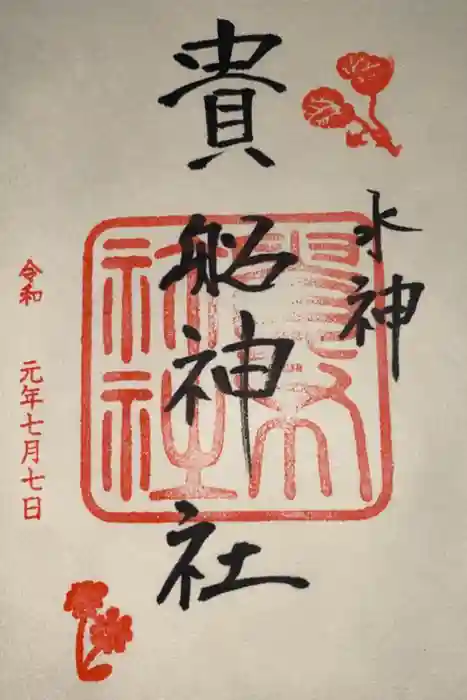 水神
貴船神社
令和 元年七月七日